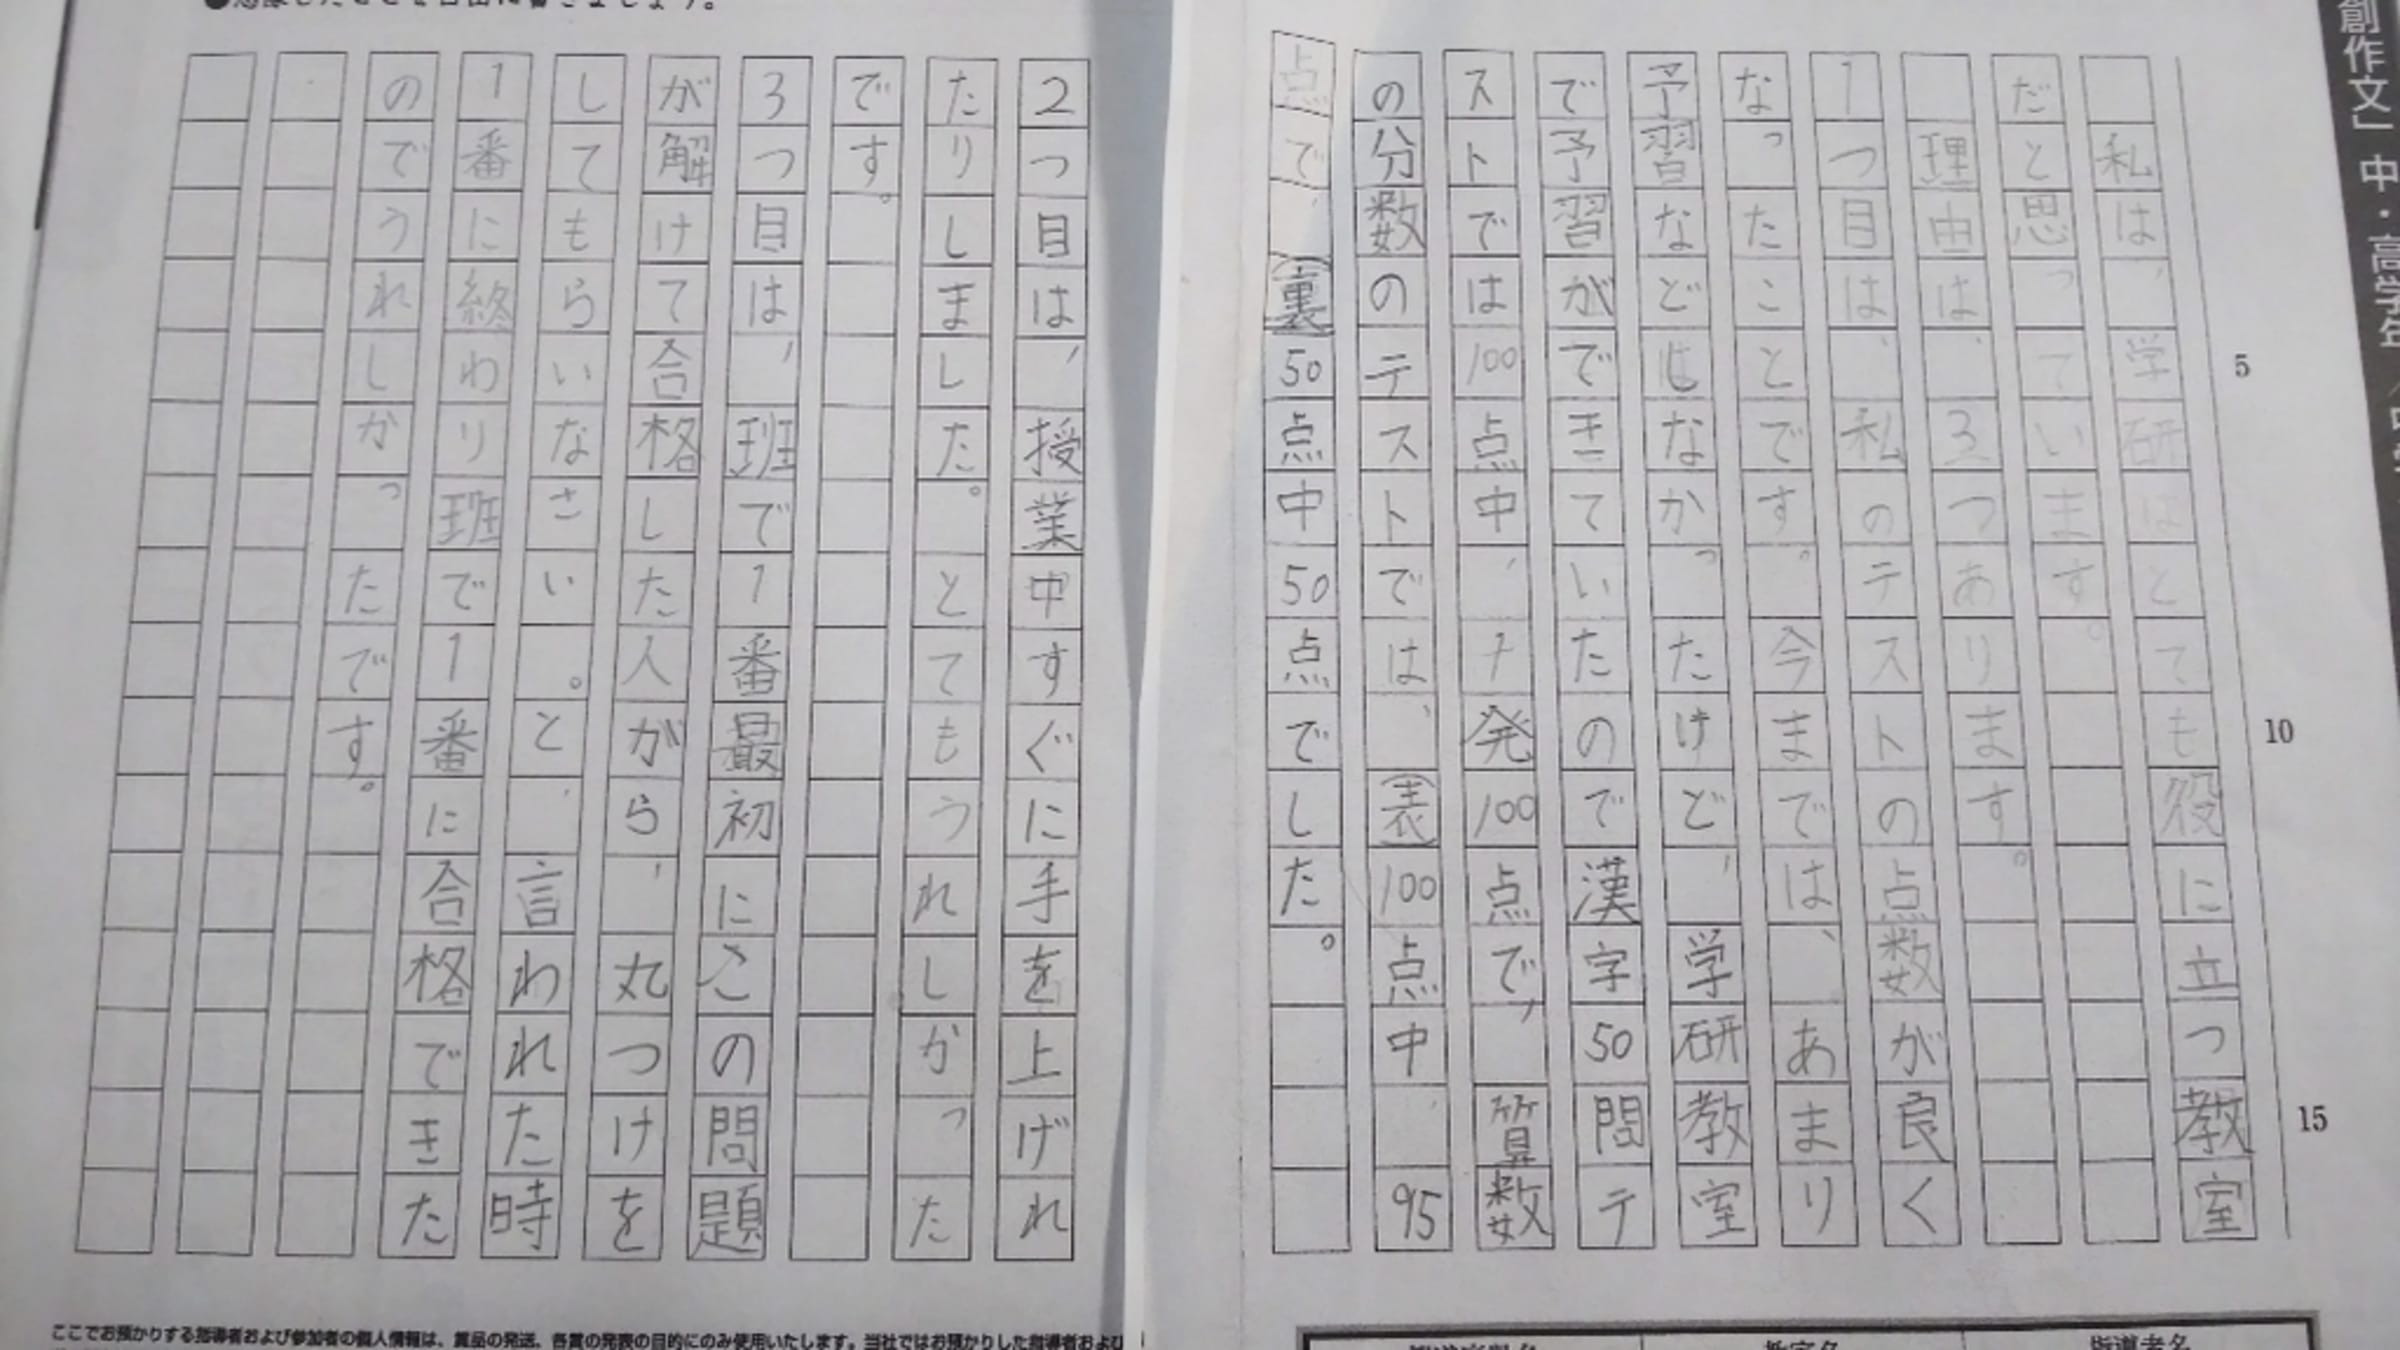 創作文」中・高学年
私は、学研はとても役に立つ教室
だと思っています。
理由は、3つあります。
1つ目は、私のテストの点数が良く
なったことです。今までは、あまり
予習などしなかったけど、学研教室
で予習ができていたので漢字50問テ
ストでは100点中、1発100点で、算数
の分数のテストでは、表100点中95
点で、裏50点中50点でした。
5
10
15
2つ目は、授業中すぐに手を上げれ
たりしました。とてもうれしかった
です。
3つ目は、班で1番最初にこの問題
が解けて合格した人がら、丸つけを
してもらいなさい。と、言われた時
1番に終わり班で1番に合格できた
のでうれしかったです。
ここでお預かりする指導者および参加者の個人情報は、賞品の発送、各賞の発表の目的にのみ使用いたします。当社ではお預かりした指導者および
教室名
指導者名